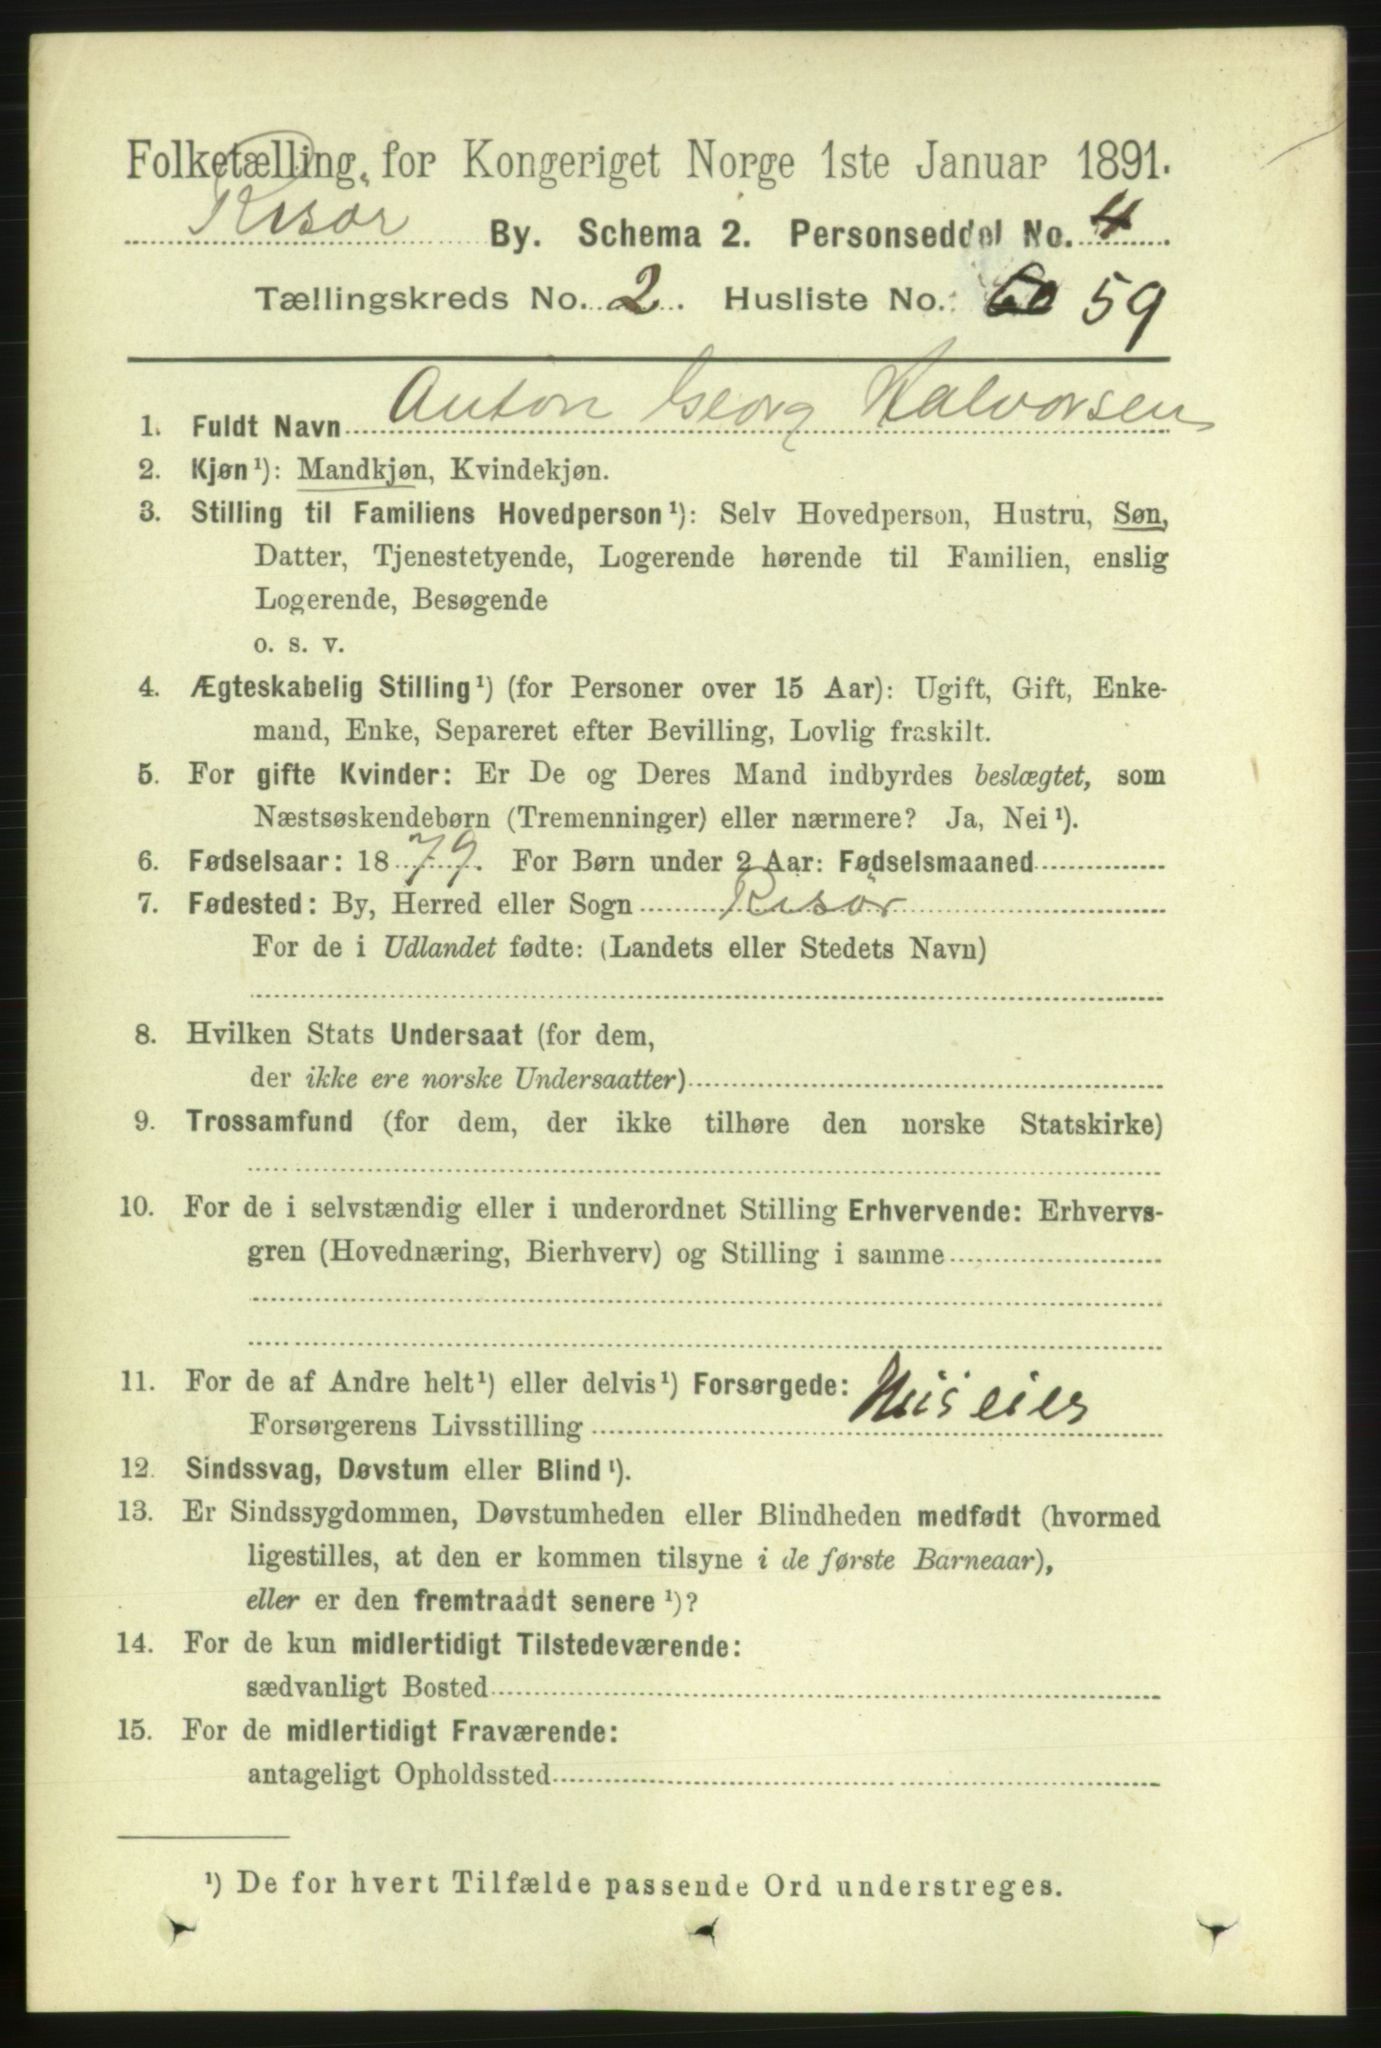 Folketælling for Kongeriget Norge 1ste Januar 1891.
Risør By. Schema 2. Personseddel No. 4
Tællingskreds No. 2. Husliste No. 60 59
1. Fuldt Navn Anton Georg Halvorsen
2. Kjøn¹): Mandkjøn, Kvindekjøn.
3. Stilling til Familiens Hovedperson¹): Selv Hovedperson, Hustru, Søn,
Datter, Tjenestetyende, Logerende hørende til Familien, enslig
Logerende, Besøgende
o. s. v.
4. Ægteskabelig Stilling¹) (for Personer over 15 Aar): Ugift, Gift, Enke-
mand, Enke, Separeret efter Bevilling, Lovlig fraskilt.
5. For gifte Kvinder: Er De og Deres Mand indbyrdes beslægtet, som
Næstsøskendebørn (Tremenninger) eller nærmere? Ja, Nei¹).
6. Fødselsaar: 1879. For Børn under 2 Aar: Fødselsmaaned
7. Fødested: By, Herred eller Sogn Risör
For de i Udlandet fødte: (Landets eller Stedets Navn)
8. Hvilken Stats Undersaat (for dem,
der ikke ere norske Undersaatter)
9. Trossamfund (for dem, der ikke tilhøre den norske Statskirke)
10. For de i selvstændig eller i underordnet Stilling Erhvervende: Erhvervs-
gren (Hovednæring, Bierhverv) og Stilling i samme
11. For de af Andre helt¹) eller delvis¹) Forsørgede:
Forsørgerens Livsstilling Huseier
12. Sindssvag, Døvstum eller Blind¹).
13. Er Sindssygdommen, Døvstumheden eller Blindheden medfødt (hvormed
ligestilles, at den er kommen tilsyne i de første Barneaar),
eller er den fremtraadt senere¹)?
14. For de kun midlertidigt Tilstedeværende:
sædvanligt Bosted
15. For de midlertidigt Fraværende:
antageligt Opholdssted
¹) De for hvert Tilfælde passende Ord understreges.